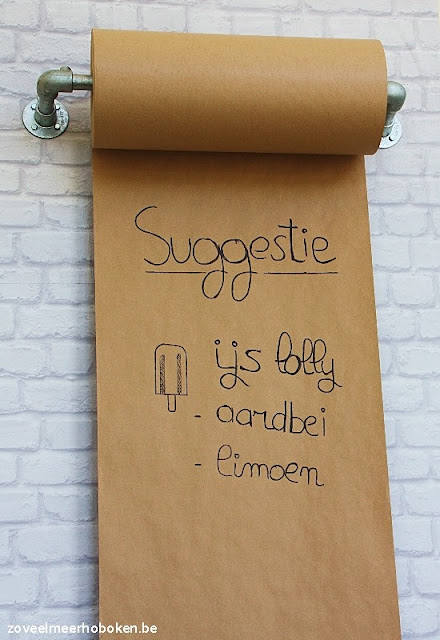 Suggestie
ijs lolly
- aardbei
- limoen
zoveelmeerhoboken.be